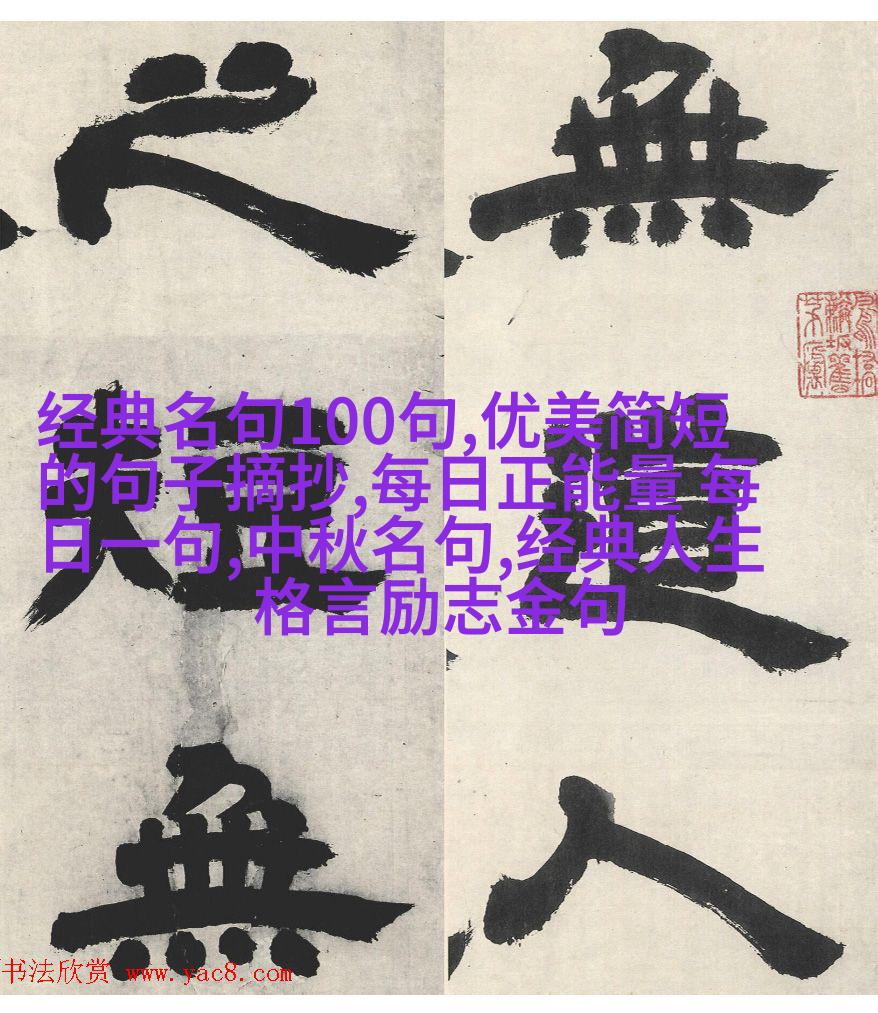 無道人
之短無
经典名句100句,优美简短
的句子摘抄,每日正能量 每
日一句,中秋名句,经典人生
格言励志金句
书法欣赏 www.yac8.com